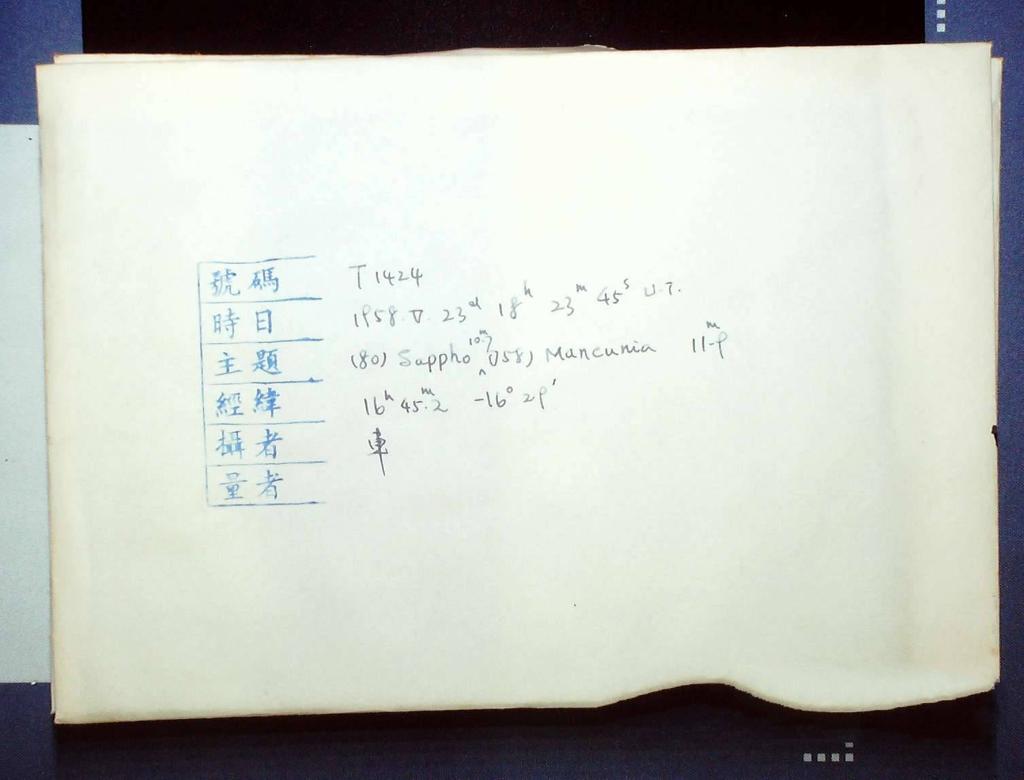 號碼 T 1424
時日 1958. V. 23ᵈ 18ʰ 23ᵐ 45ˢ U.T.
主題 (80) Sappho 10ᵐ.7 (758) Mancunia 11ᵐ.9
經緯 16ʰ 45ᵐ.2 -16° 29′
攝者 車
量者